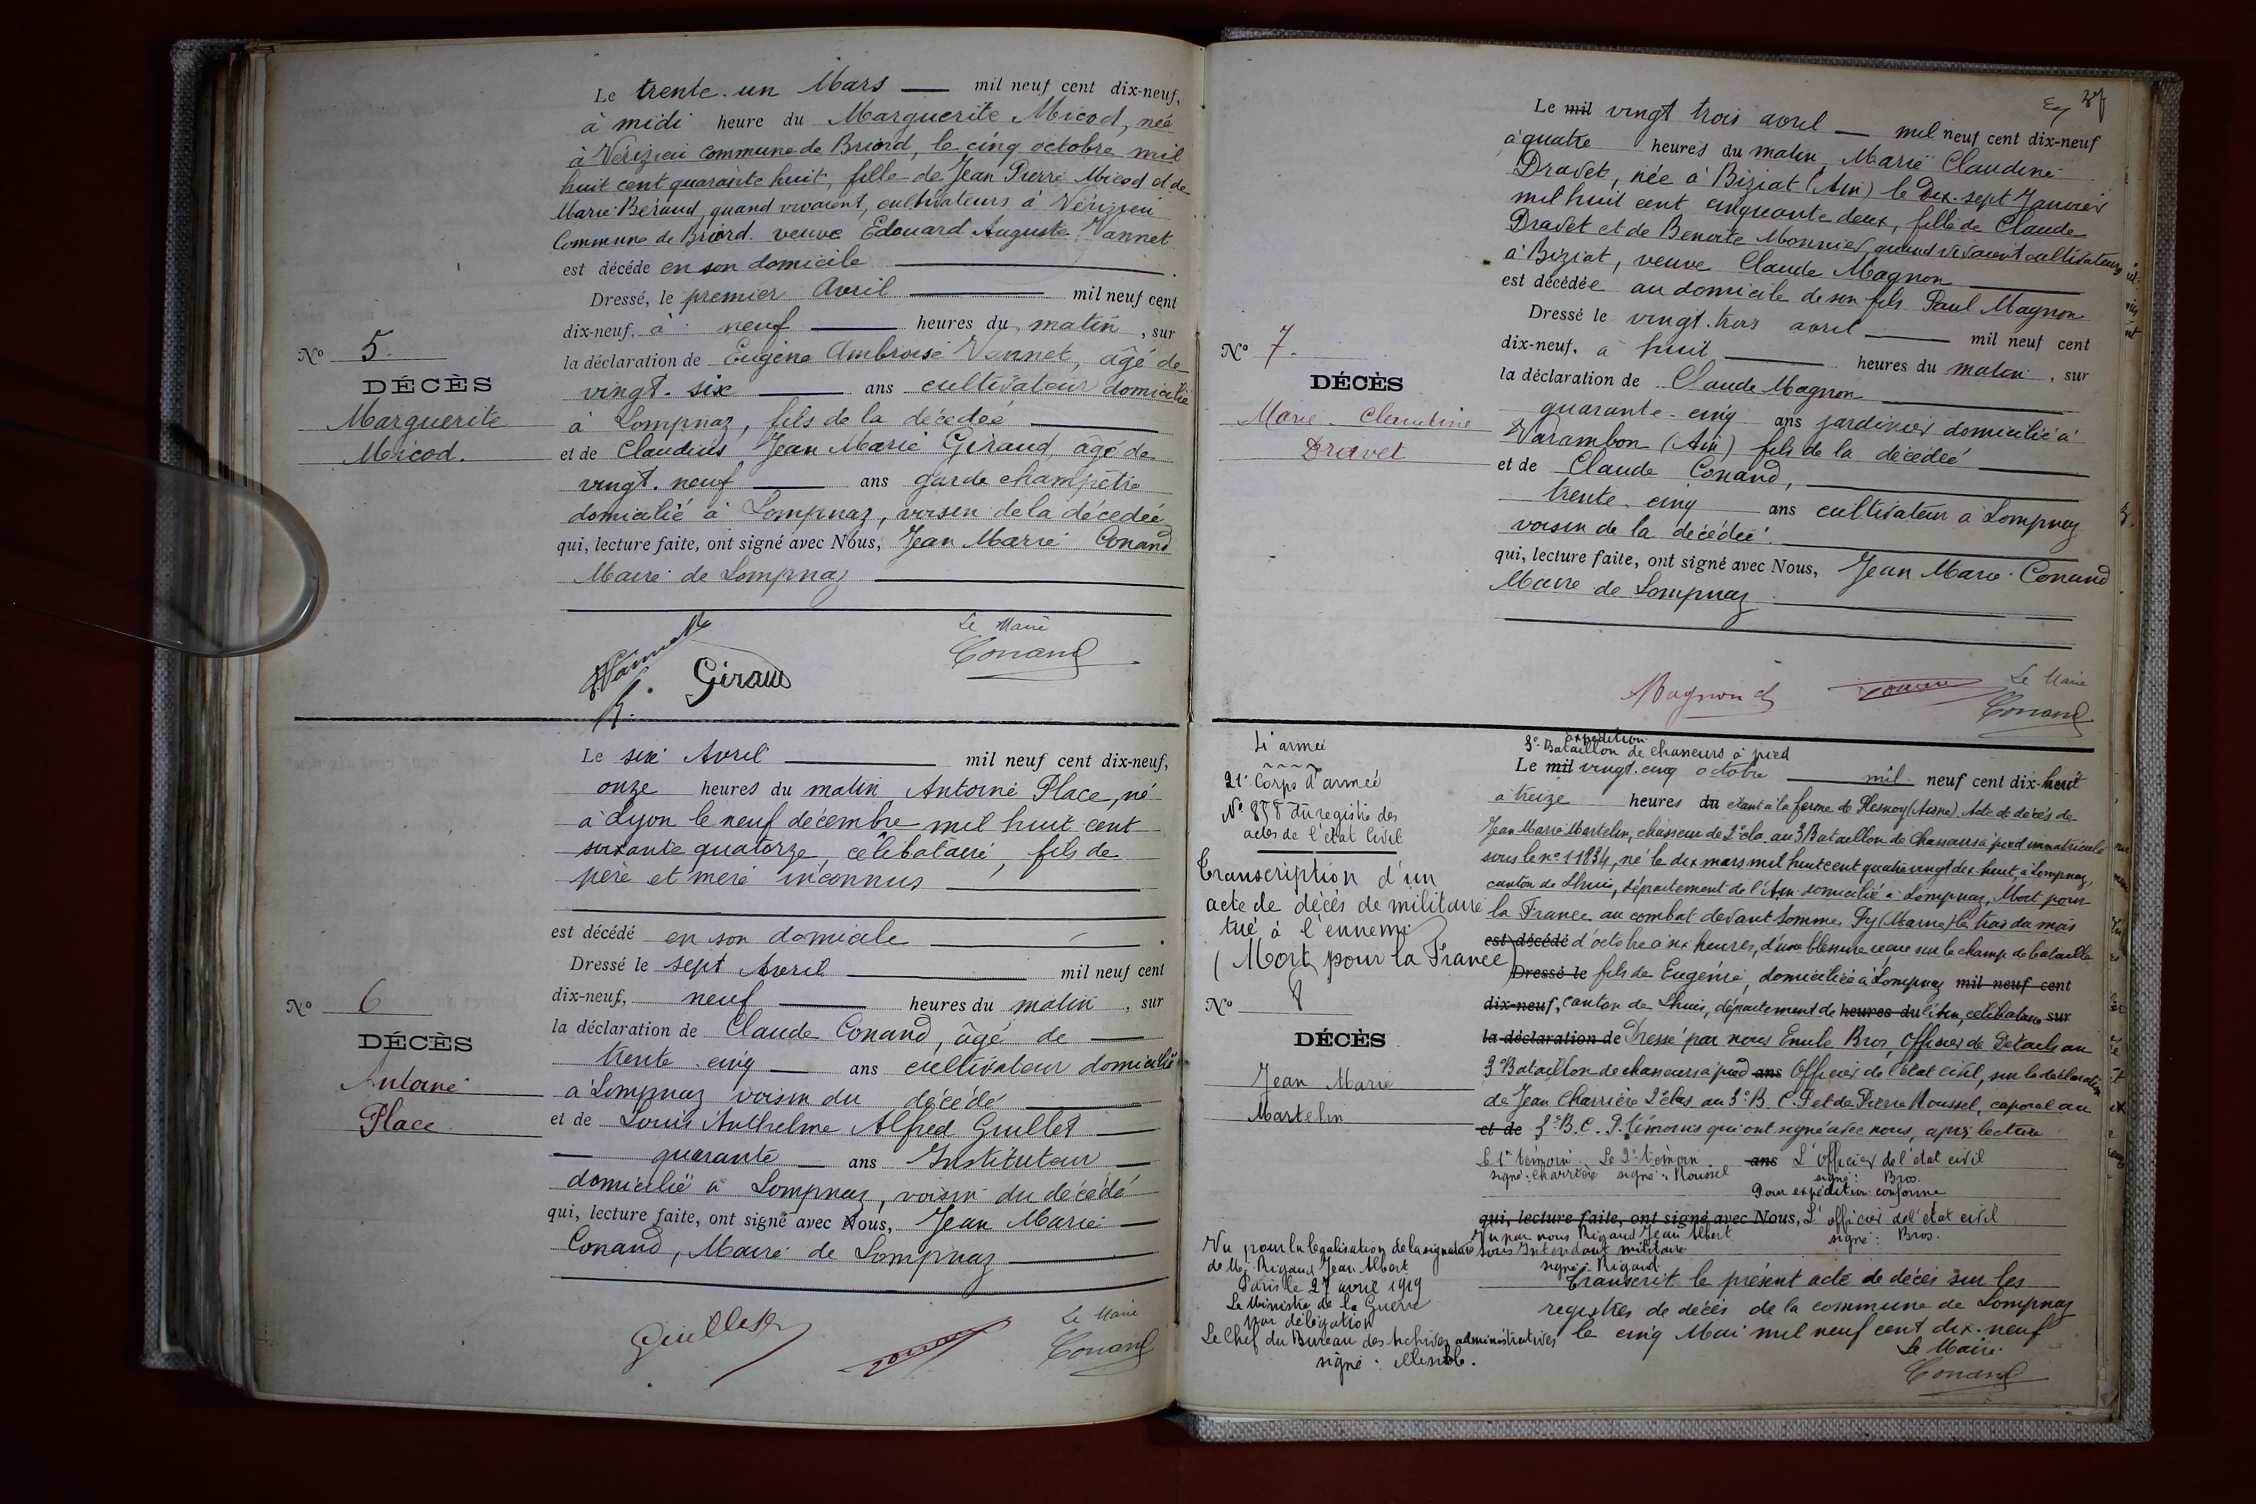 Le trente-un Mars — mil neuf cent dix-neuf,
à midi heure du Marguerite Micod, née
à Vérizieu commune de Briord, le cinq octobre mil
huit cent quarante huit, fille de Jean Pierre Micod et de
Marie Béraud, quand vivaient, cultivateurs à Vérizieu
Commune de Briord. veuve Edouard Auguste Vannet
est décédé en son domicile
Dressé, le premier Avril mil neuf cent
dix-neuf, à neuf heures du matin, sur
No 5.
la déclaration de Eugène Ambroise Vannet, âgé de
DÉCÈS
vingt-six ans cultivateur domicilié
Marguerite
à Lompnaz, fils de la décédée
Micod.
et de Claudius Jean Marie Giraud, âgé de
vingt-neuf ans garde champêtre
domicilié à Lompnaz, voisin de la décédée
qui, lecture faite, ont signé avec Nous, Jean Marie Conand
Maire de Lompnaz
Le Maire
Giraud Conand
Le six Avril mil neuf cent dix-neuf,
onze heures du matin Antoine Place, né
à Lyon le neuf décembre mil huit cent
soixante quatorze, célibataire, fils de
père et mère inconnus
est décédé en son domicile
Dressé le sept Avril mil neuf cent
No 6
dix-neuf, neuf heures du matin, sur
la déclaration de Claude Conand, âgé de
DÉCÈS
trente-cinq ans cultivateur domicilié
Antoine
à Lompnaz voisin du décédé
Place
et de Louis Anthelme Alfred Guillet
quarante ans Instituteur
domicilié à Lompnaz, voisin du décédé
qui, lecture faite, ont signé avec Nous, Jean Marie
Conand, Maire de Lompnaz
Le Maire
Guillet Conand
Le mil vingt trois avril — mil neuf cent dix-neuf
à quatre heures du matin Marie Claudine
Dravet, née à Biziat (Ain) le Dix-sept Janvier
mil huit cent cinquante deux, fille de Claude
Dravet et de Benoite Monnier, quand vivaient cultivateurs
à Biziat, veuve Claude Magnon
est décédée au domicile de son fils Paul Magnon
Dressé le vingt-trois avril mil neuf cent
No 7.
dix-neuf, à huit heures du matin, sur
DÉCÈS
la déclaration de Claude Magnon
Marie Claudine
quarante-cinq ans jardinier domicilié à
Dravet
Varambon (Ain) fils de la décédée
et de Claude Conand,
trente-cinq ans cultivateur à Lompnaz
voisin de la décédée.
qui, lecture faite, ont signé avec Nous, Jean Marie Conand
Maire de Lompnaz
Le Maire
Magnon Conand
4e armée
21e Corps d'armée
No 858 du registre des
actes de l'état civil
Transcription d'un
acte de décès de militaire
tué à l'ennemi
(Mort pour la France)
No 8
DÉCÈS
Jean Marie
Martelin
expédition
3e Bataillon de chasseurs à pied
Le mil vingt-cinq octobre mil neuf cent dix-huit
à treize heures du étant à la ferme de Plesnoy (Aisne) Acte de décès de
Jean Marie Martelin, chasseur de 2e cla. au 3 Bataillon de Chasseurs à pied immatriculé
sous le no 11834, né le dix mars mil huit cent quatre vingt dix-huit, à Lompnaz,
canton de Lhuis, département de l'Ain domicilié à Lompnaz, Mort pour
la France au combat devant Somme Py (Marne) le trois du mois
est décédé d'octobre à six heures, d'une blessure reçue sur le champ de bataille
Dressé le fils de Eugénie, domiciliée à Lompnaz mil neuf cent
dix-neuf, canton de Lhuis, département de heures du l'Ain, célibataire sur
la déclaration de Dressé par nous Emile Bros, Officier de Détails au
3e Bataillon de chasseurs à pied ans Officier de l'état civil, sur la déclaration
de Jean Charrière 2e clas au 3e B. C. P et de Pierre Roussel, caporal au
et de 3e B. C. P. témoins qui ont signé avec nous, après lecture
Le 1er témoin Le 2e témoin ans L'Officier de l'état civil
signé: Charrière signé: Roussel signé: Bros.
Pour expédition conforme
qui, lecture faite, ont signé avec Nous, L'officier de l'état civil
Vu par nous Rigaud Jean Albert signé: Bros.
Sous Intendant militaire
signé: Rigaud
Transcrit le présent acte de décès sur les
registres de décès de la commune de Lompnaz
le cinq Mai mil neuf cent dix-neuf
Le Maire
Conand
Vu pour la légalisation de la signature
de M. Rigaud Jean Albert
Paris le 27 avril 1919
Le Ministre de la Guerre
par délégation
Le Chef du Bureau des Archives administratives
signé: